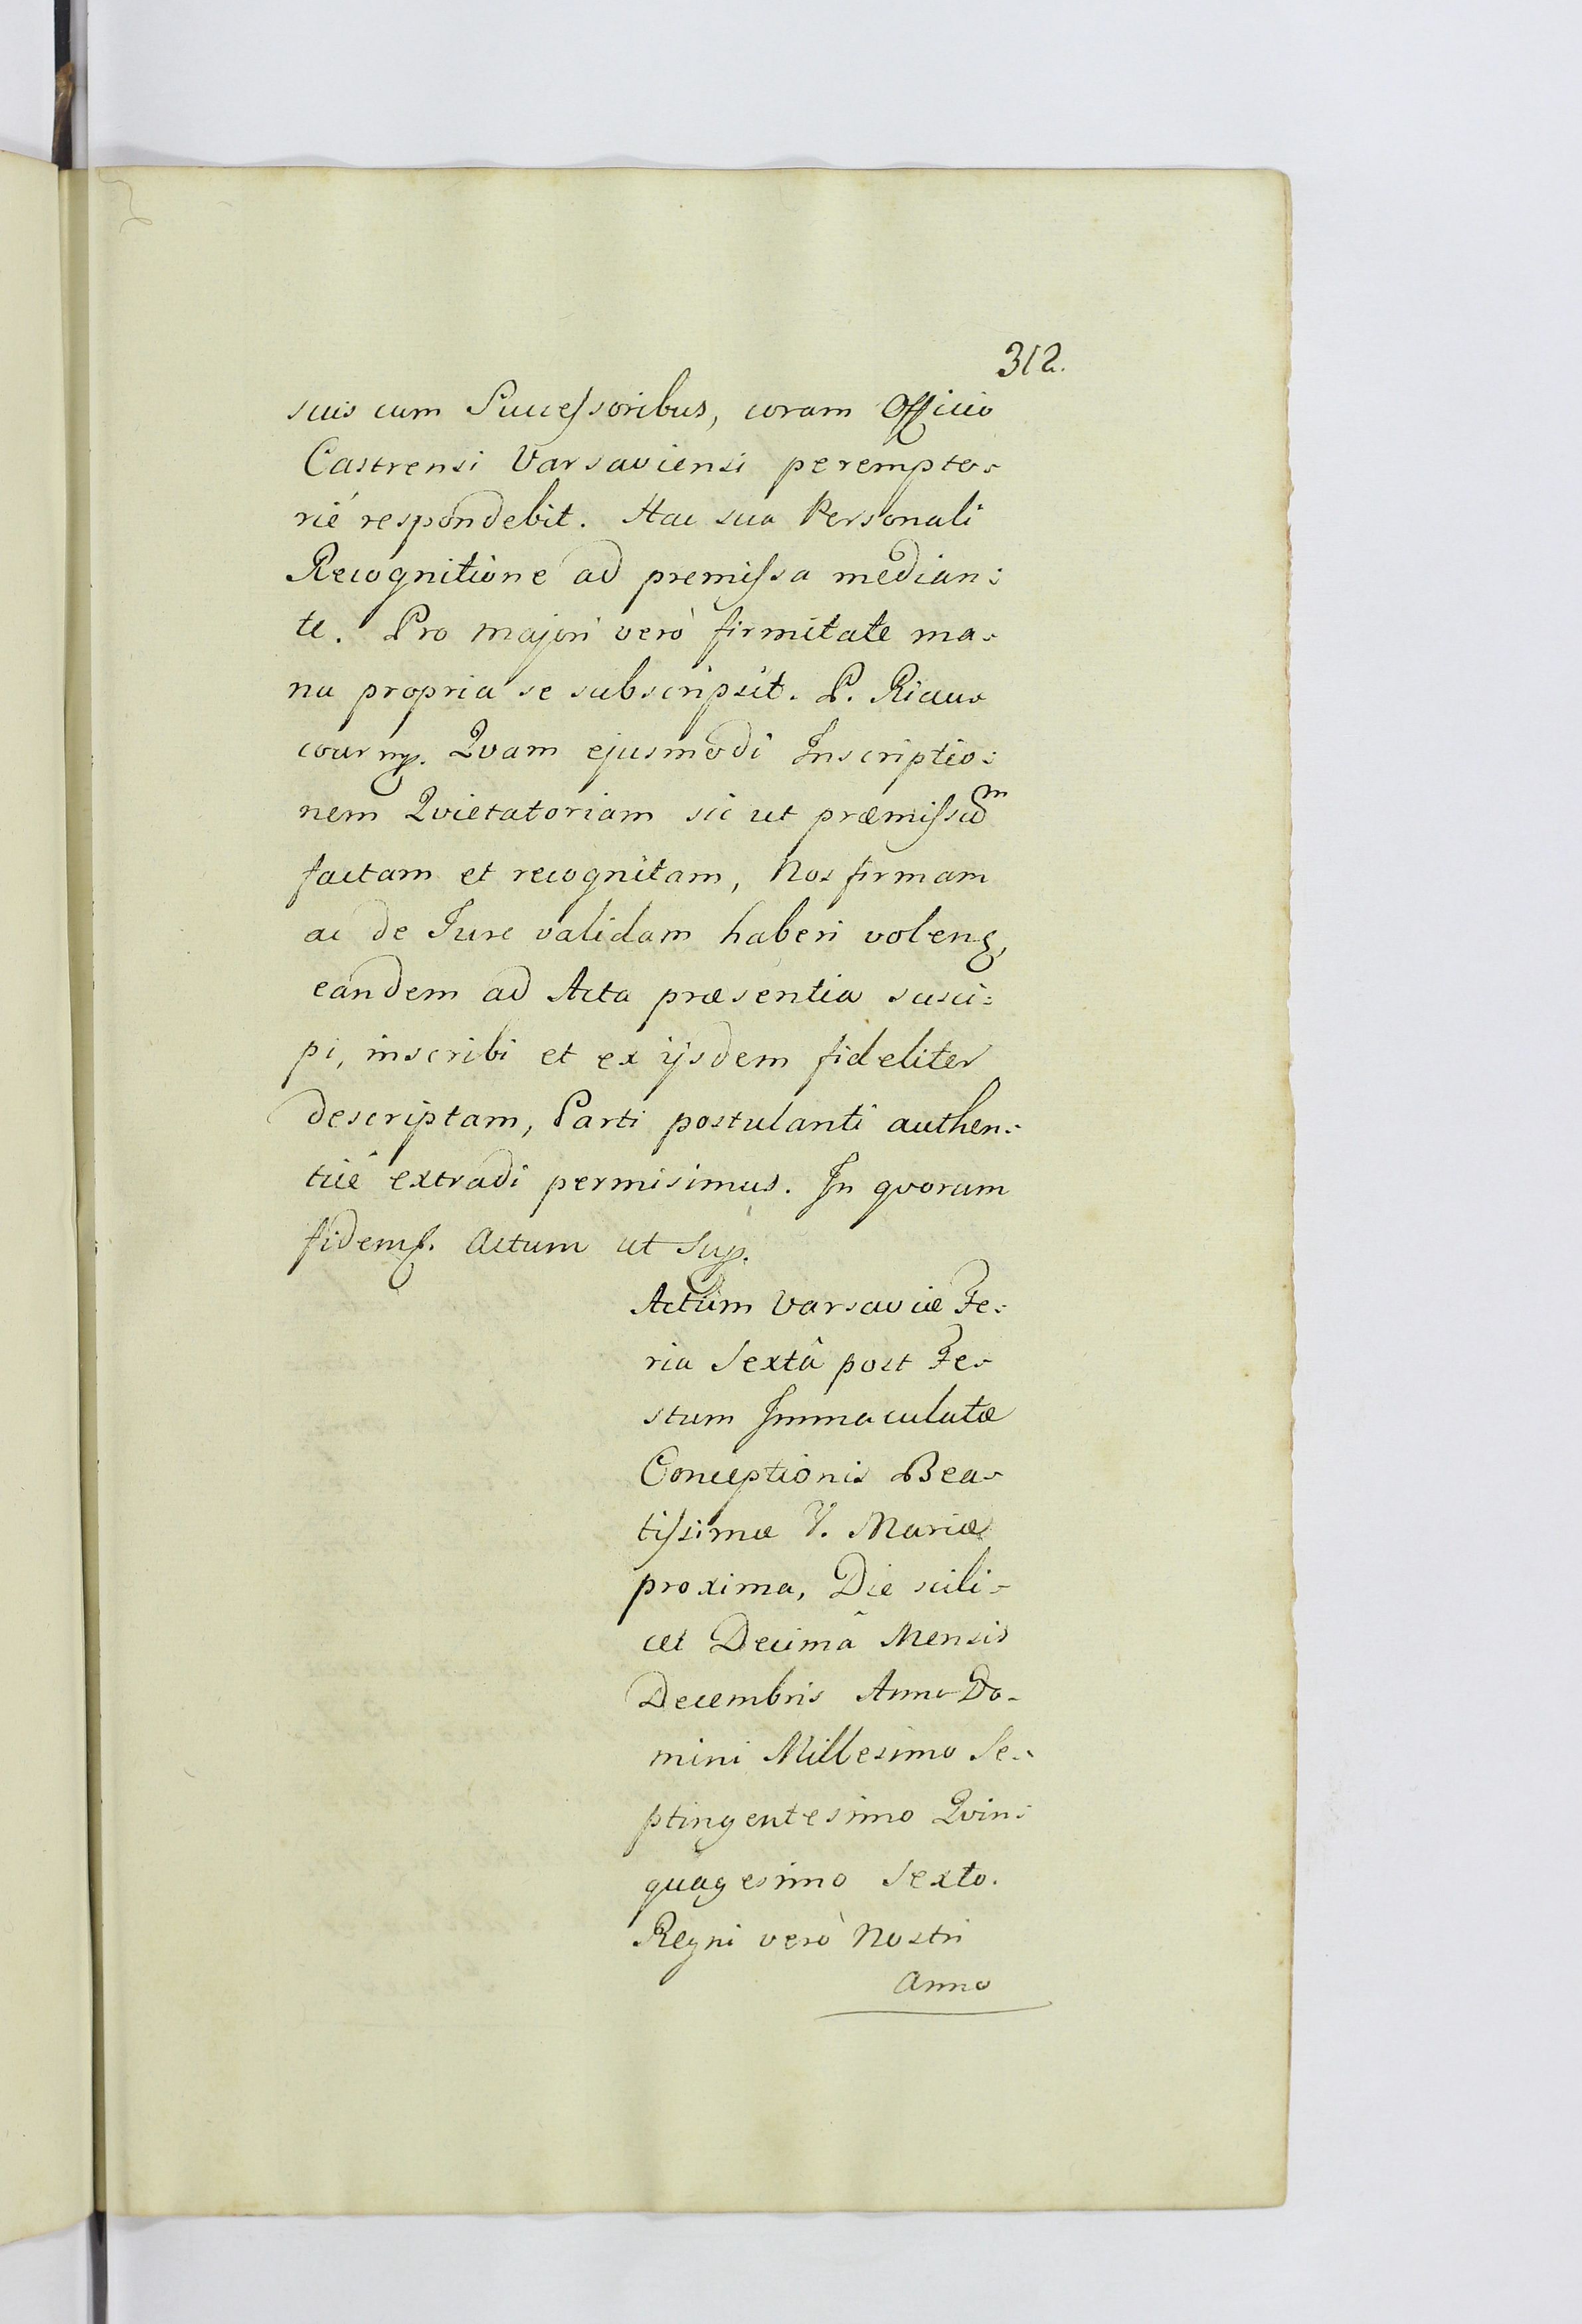 312.
suis cum Successoribus, coram Officio
Castrensi Varsaviensi perempto-
rié respondebit. Hac sua Personali
Recognitione ad premissa median:
te. Pro majori verò firmitate ma-
nu propria se subscripsit. P. Riacour
mp. Qvam ejusmodi Inscriptio:
nem Qvietatoriam sic ut præmissum
factam et recognitam, Nos firmam
ac de Jure validam haberi volentes,
eandem ad Acta præsentia susci:
pi, inscribi et ex ijsdem fideliter
descriptam, Parti postulanti authen:
ticè extradi permisimus. In qvorum
fidem. Actum ut Sup.
Actum Varsaviæ Fe:
ria Sextâ post Fe-
stum Immaculatæ
Conceptionis Bea-
tissimæ V. Mariæ
proxima, Die scili-
cet Decimâ Mensis
Decembris Anno Do-
mini Millesimo Se-
ptingentesimo Qvin:
quagesimo Sexto.
Regni verò Nostri
Anno